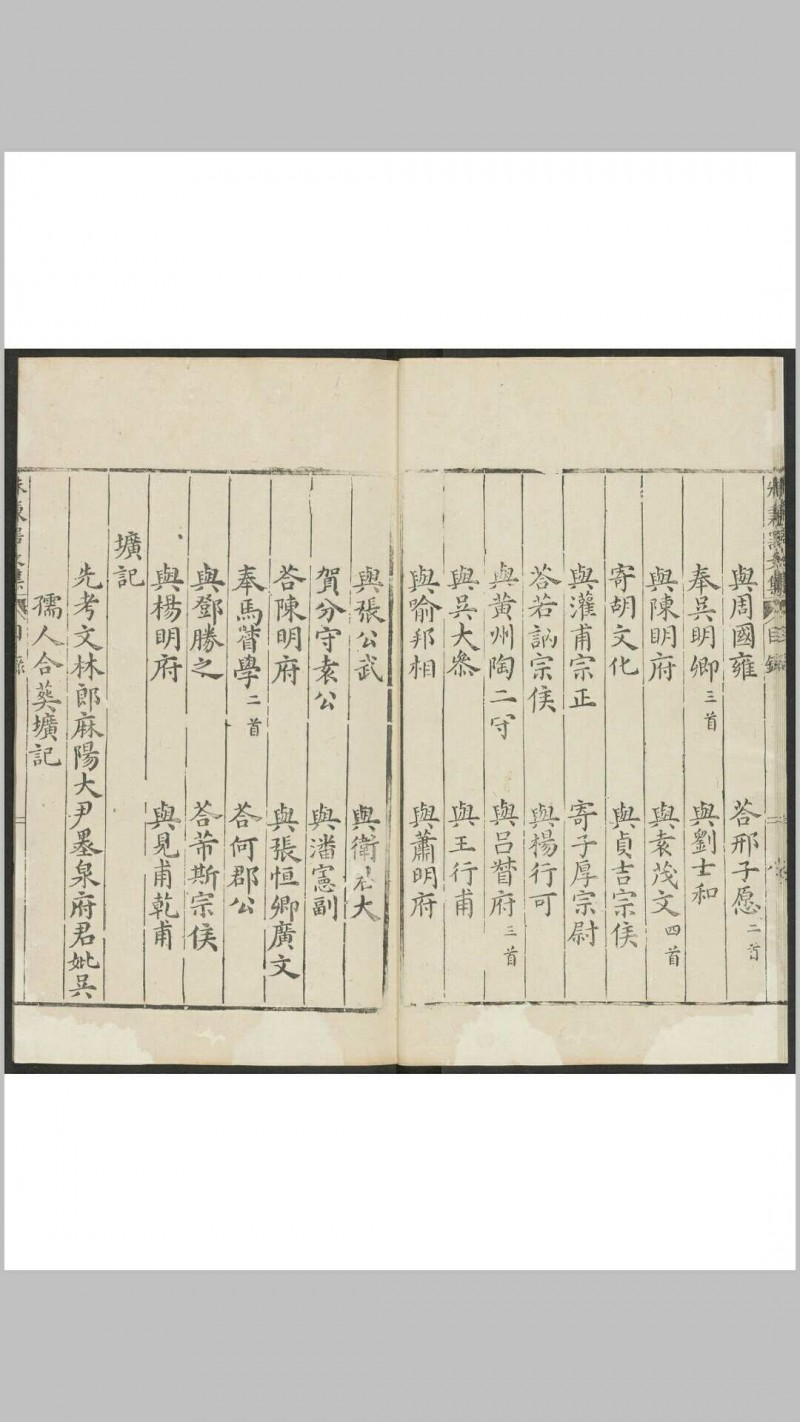 目錄
與周國雍 答邢子愿二首
奉吳明卿三首 與劉士和
與陳明府 與袁茂文四首
寄胡文化 與貞吉宗侯
與灌甫宗正 寄子厚宗尉
答若訥宗侯 與楊行可
與黃州陶二守 與呂督府三首
與吳大叅 與王行甫
與喻邦相 與蕭明府
與張公武 與衛 大
賀分守袁公 與潘憲副
答陳明府 與張恒卿廣文
奉馬督學二首 答何郡公
與鄧勝之 答芾斯宗侯
與楊明府 與見甫乾甫
壙記
先考文林郎麻陽大尹墨泉府君妣吳
孺人合葬壙記